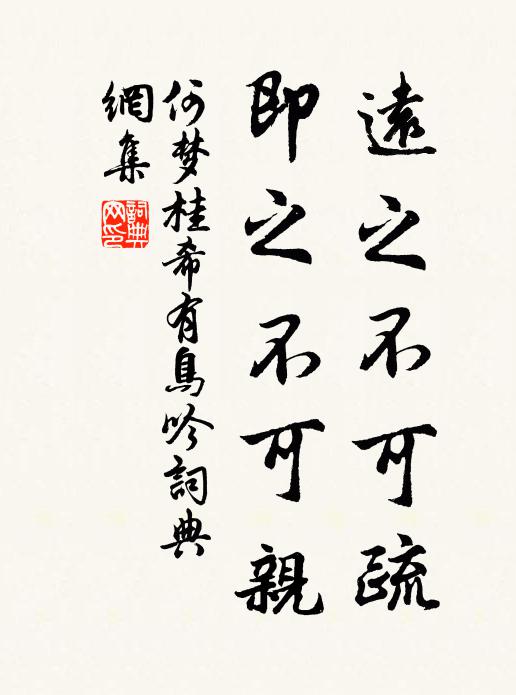 遠之不可疏
即之不可親
何梦桂希有鳥吟詞典
網集
詞典網印